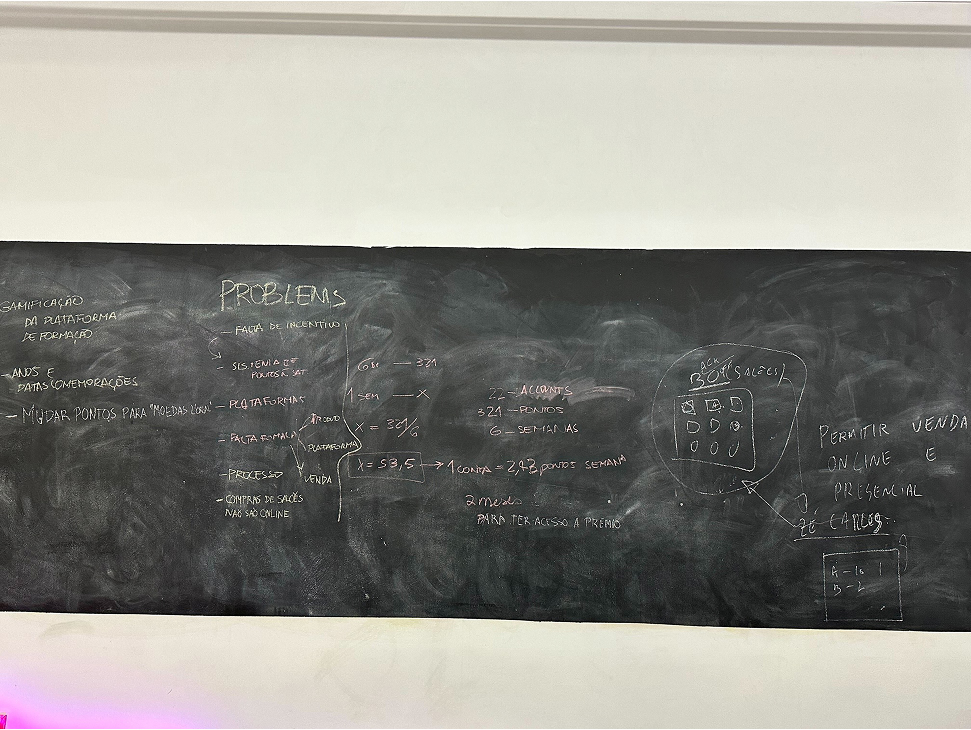 GAMIFICAÇÃO
DA PLATAFORMA
DE FORMAÇÃO
-ANOS E
DATAS COMEMORAÇÕES
- MUDAR PONTOS PARA "MOEDAS
PROBLEMS
- FALTA DE INCENTIVO
- SISTEMA DE
PONTOS
- PLATAFORMAS
- FALTA FORMAÇÃO
PLATAFORMA
VENDA
- PROCESSO
- COMPRAS DE SALÕES
NÃO SÃO ONLINE
6 — 321
1 SEM — X
X = 321/6
X = 53,5 → 1 CONTA = 2,43 PONTOS SEMANA
22 - ACCOUNTS
321 - PONTOS
6 - SEMANAS
2 meses
PARA TER ACESSO A PREMIO
SALÕES
PERMITIR VENDA
ONLINE E
PRESENCIAL
ZÉ CARLOS
A - 10 1
B - 2